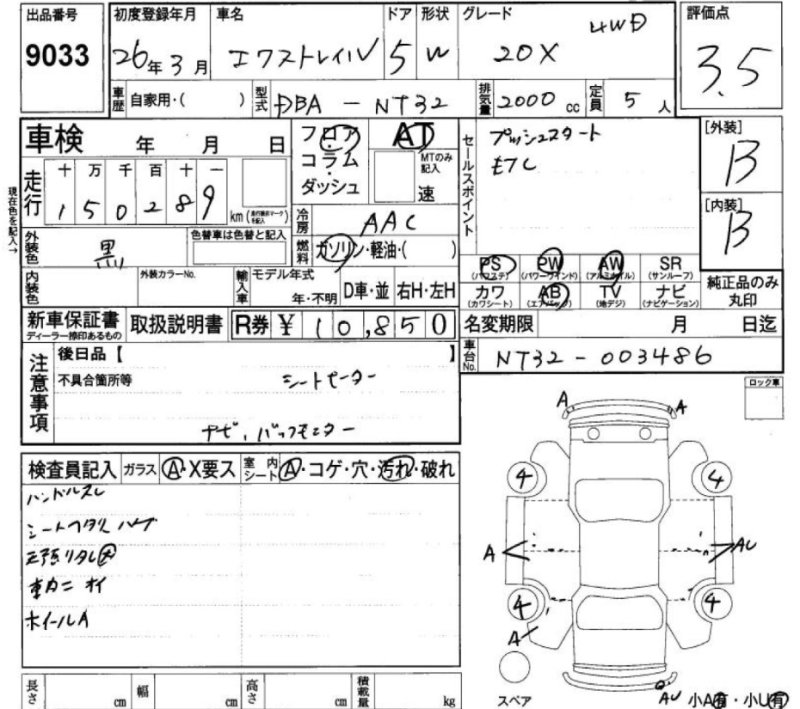 出品番号 初度登録年月 車名 ドア 形状 グレード 評価点
9033 26年 3月 エクストレイル 5 W 20X 4WD 3.5
車歴 自家用・( ) 型式 DBA - NT32 排気量 2000 cc 定員 5 人
車検 年 月 日 フロア コラム ダッシュ AT MTのみ記入 速
セールスポイント プッシュスタート
ETC
[外装] B
[内装] B
走行 十 万 千 百 十 一
1 5 0 2 8 9 km
現在色を記入→
冷房 AAC
外装色 黒 色替車は色替と記入 燃料 ガソリン・軽油・( )
PS (パワステ) PW (パワーウインド) AW (アルミホイル) SR (サンルーフ)
カワ (カワシート) AB (エアバッグ) TV (地デジ) ナビ (ナビゲーション)
純正品のみ丸印
内装色 外装カラーNo. 輸入車 モデル年式 年・不明 D車・並 右H・左H
新車保証書 ディーラー捺印あるもの 取扱説明書 R券 ¥ 10,850 名変期限 月 日迄
注意事項 後日品【 】
車台No. NT32 - 003486
不具合箇所等 シートヒーター
ナビ, バックモニター
ロック車
検査員記入 ガラス A・X要ス 室内シート A・コゲ・穴・汚れ・破れ
ハンドルスレ
シートヘタリ ハゲ
ホイールA
A A
4 4
A AU
4 4
A
スペア
AU 小A有・小U有
長さ cm 幅 cm 高さ cm 積載量 kg